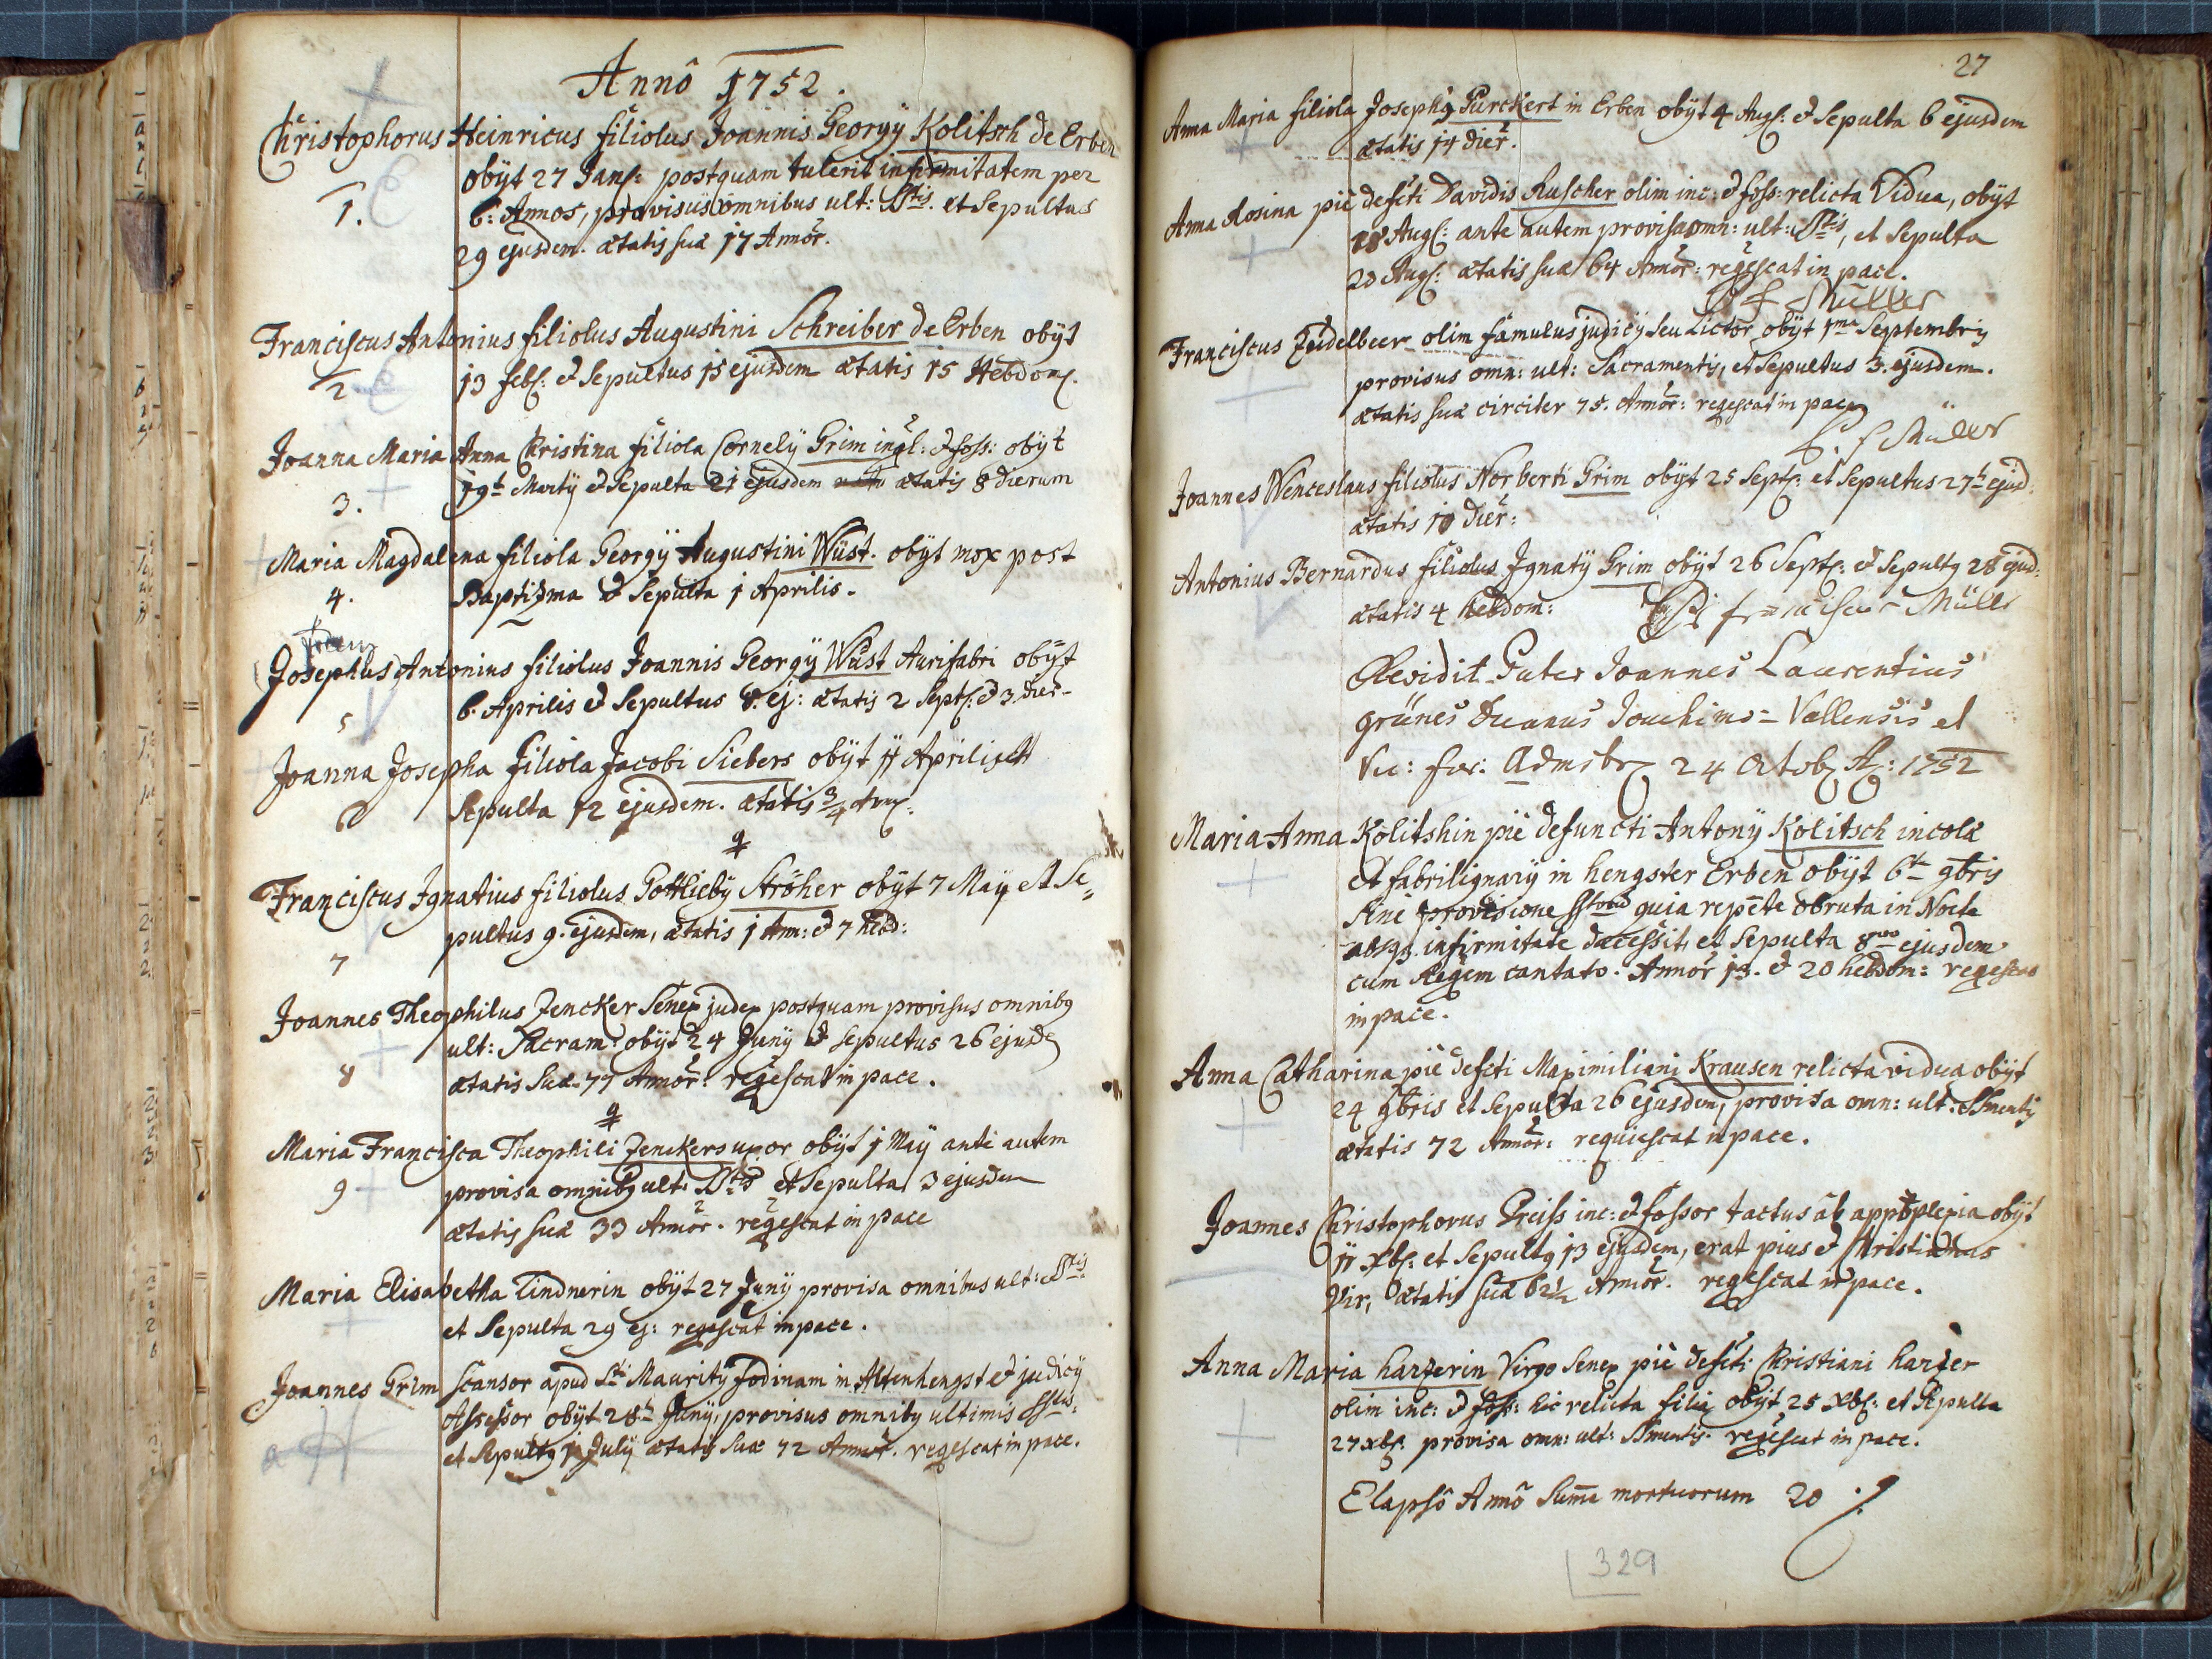 Annô 1752.
Christophorus Heinricus filiolus Joannis Georgÿ Kolitsch de Erben
obÿt 27 Jan: postquam tulerit infirmitatem per
1. 6: Annos, provisus omnibus ult: Stis. et Sepultus
29 ejusdem. ætatis suæ 17 Annor.
Franciscus Antonius filiolus Augustini Schreiber de Erben obÿt
2 13 feb: & Sepultus 15 ejusdem ætatis 15 Hebdom.
Joanna Maria Anna Christina filiola Cornelÿ Grim inql: & foss: obÿt
3. 19t Martÿ & Sepulta 21 ejusdem ætatis 8 dierum
Maria Magdalena filiola Georgÿ Augustini Wüst. obÿt mox post
4. Baptisma & Sepulta 1 Aprilis.
Josephus Antonius filiolus Joannis Georgÿ Wüst Aurifabri obÿt
5 6. Aprilis & Sepultus 8. ej: ætatis 2 Sept: & 3. dier-
Joanna Josepha filiola Jacobi Siebers obÿt 11 Aprilis et
6 Sepulta 12 ejusdem. ætatis 3/4 Ann:
Franciscus Ignatius filiolus Gottliebÿ Ströher obÿt 7 Maÿ et Se=
pultus 9. ejusdem, ætatis 1 Ann: & 7 hebd:
7
Joannes Theophilus Zencker Senex judex postquam provisus omnibq
ult: Sacram: obÿt 24 Junÿ & sepultus 26 ejusd
8 ætatis Suæ 77 Annor: reqescat in pace.
Maria Francisca Theophili Zenckers uxor obÿt 1 Maÿ ante autem
9 provisa omnibq ult: Stis et Sepulta 3 ejusdem
ætatis suæ 33 Annor. reqescat in pace
Maria Elisabetha Lindnerin obÿt 27 Junÿ provisa omnibus ult: Stis
et Sepulta 29 ej: reqescat in pace.
Joannes Grim scansor apud Sti Mauritÿ fodinam in Altenhengst & judicÿ
Assessor obÿt 28t Junÿ, provisus omnibq ultimis
et Sepultq 1 Julÿ ætatis suæ 72 Annor. reqescat in pace.
27
Anna Maria filiola Josephq Purckert in Erben obÿt 4 Aug: & Sepulta 6 ejusdem
ætatis 14 dier.
Anna Rosina piè defcti Davidis Ruscher olim inc: & foss: relicta Vidua, obÿt
18 Aug: ante autem provisa omn: ult: Stis, et Sepulta
20 Aug: ætatis suæ 64 Annor: reqescat in pace.
P f Müller
Franciscus Zeidelbeer olim famulus judicÿ seu Lictor obÿt 1ma Septembris
provisus omn: ult: Sacramentis, et Sepultus 3. ejusdem.
ætatis suæ circiter 75. Annor: reqescat in pace
P. f Müller
Joannes Wenceslaus filiolus Norberti Grim obÿt 25 Sept: et Sepultus 27t ejusd.
ætatis 10 dier:
Antonius Bernardus filiolus Ignatÿ Grim obÿt 26 Sept: & Sepultq 28 ejusd:
ætatis 4 hebdom: P. franciscus Müller
Revidit Pater Joannes Laurentius
grünes Decanus Joachimo=Vallensis et
Vic: for: 24 Octob A: 1752
Maria Anna Kolitshin piè defuncti Antonÿ Kolitsch incolæ
et fabrilignarÿ in hengster Erben obÿt 6t 9bris
sine provisione quia repete obruta in Nocte
absq. infirmitate decessit, et Sepulta 8vo ejusdem
cum Regem cantato. Annor 13. & 20 hebdom: reqescat
in pace.
Anna Catharina piè defcti Maximiliani Krausen relicta vidua obÿt
24 9bris et Sepulta 26 ejusdem, provisa omn: ult: Smentis
ætatis 72 Annor: requiescat in pace.
Joannes Christophorus Preiss inc: & fossor tactus ab appoplexia obÿt
11 Xb: et Sepultq 13 ejusdem, erat pius & Christianus
Vir, ætatis suæ 62 1/2 Annor. reqescat in pace.
Anna Maria harzerin Virgo Senex piè defcti Christiani harzer
olim inc: & foss: hic relicta filia obÿt 25 Xb: et Sepulta
27 Xb: provisa omn: ult: Smentis. reqescat in pace.
Elapsô Annô Suma mortuorum 20
329